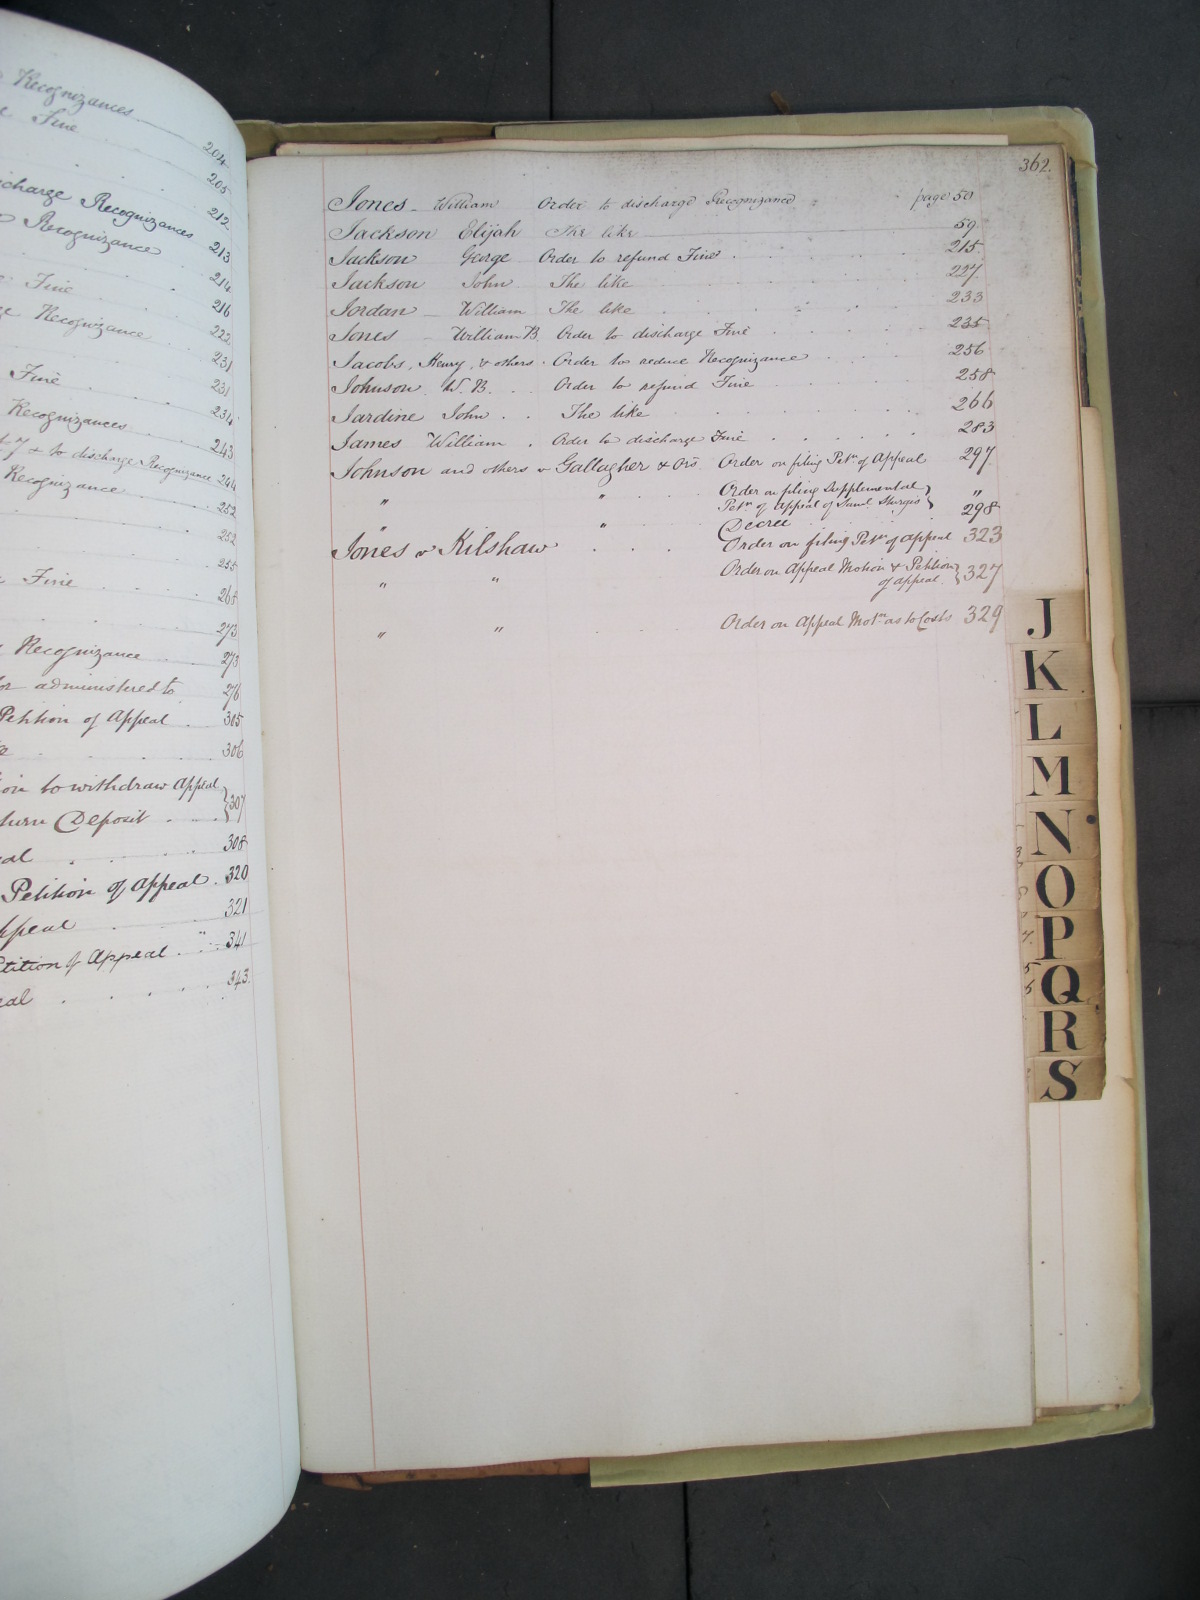 Recognizances
Fine
204
205
212
charge Recognizances
213
Recognizance
214
Fine
216
Recognizance
222
231
Fine
231
234
Recognizances
243
& to discharge Recognizance 244
Recognizance
252
252
255
Fine
268
273
Recognizance
273
administered to
276
Petition of Appeal
305
306
to withdraw Appeal
Deposit
307
308
Petition of Appeal 320
321
Petition of Appeal " 341
343
362.
Jones William Order to discharge Recognizance page 50
Jackson Elijah The like 59
Jackson George Order to refund Fine 215
Jackson John The like 227
Jordan William The like 233
Jones William B. Order to discharge Fine 235
Jacobs, Henry, & others Order to reduce Recognizance 256
Johnson W. B. Order to refund Fine 258
Jardine John The like 266
James William Order to discharge Fine 283
Johnson and others v Gallagher & Ors Order on filing Petn of Appeal 297
" " Order on filing Supplemental
Petn of Appeal of Saml Sturgis } "
" " Decree 298
Jones v Kilshaw Order on filing Petn of appeal 323
" " Order on Appeal Motion & Petition
of appeal } 327
" " Order on Appeal Motn as to Costs 329
J
K
L
M
N
O
P
Q
R
S